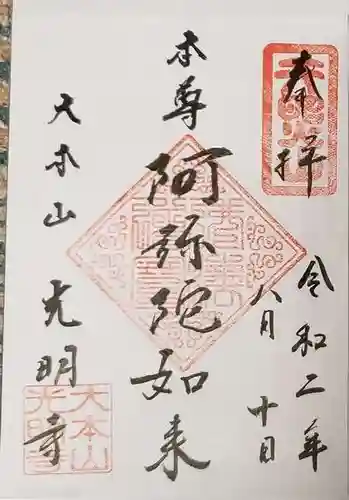 奉拝
令和二年
八月十日
本尊
阿弥陀如来
大本山光明寺
大本山
光明寺